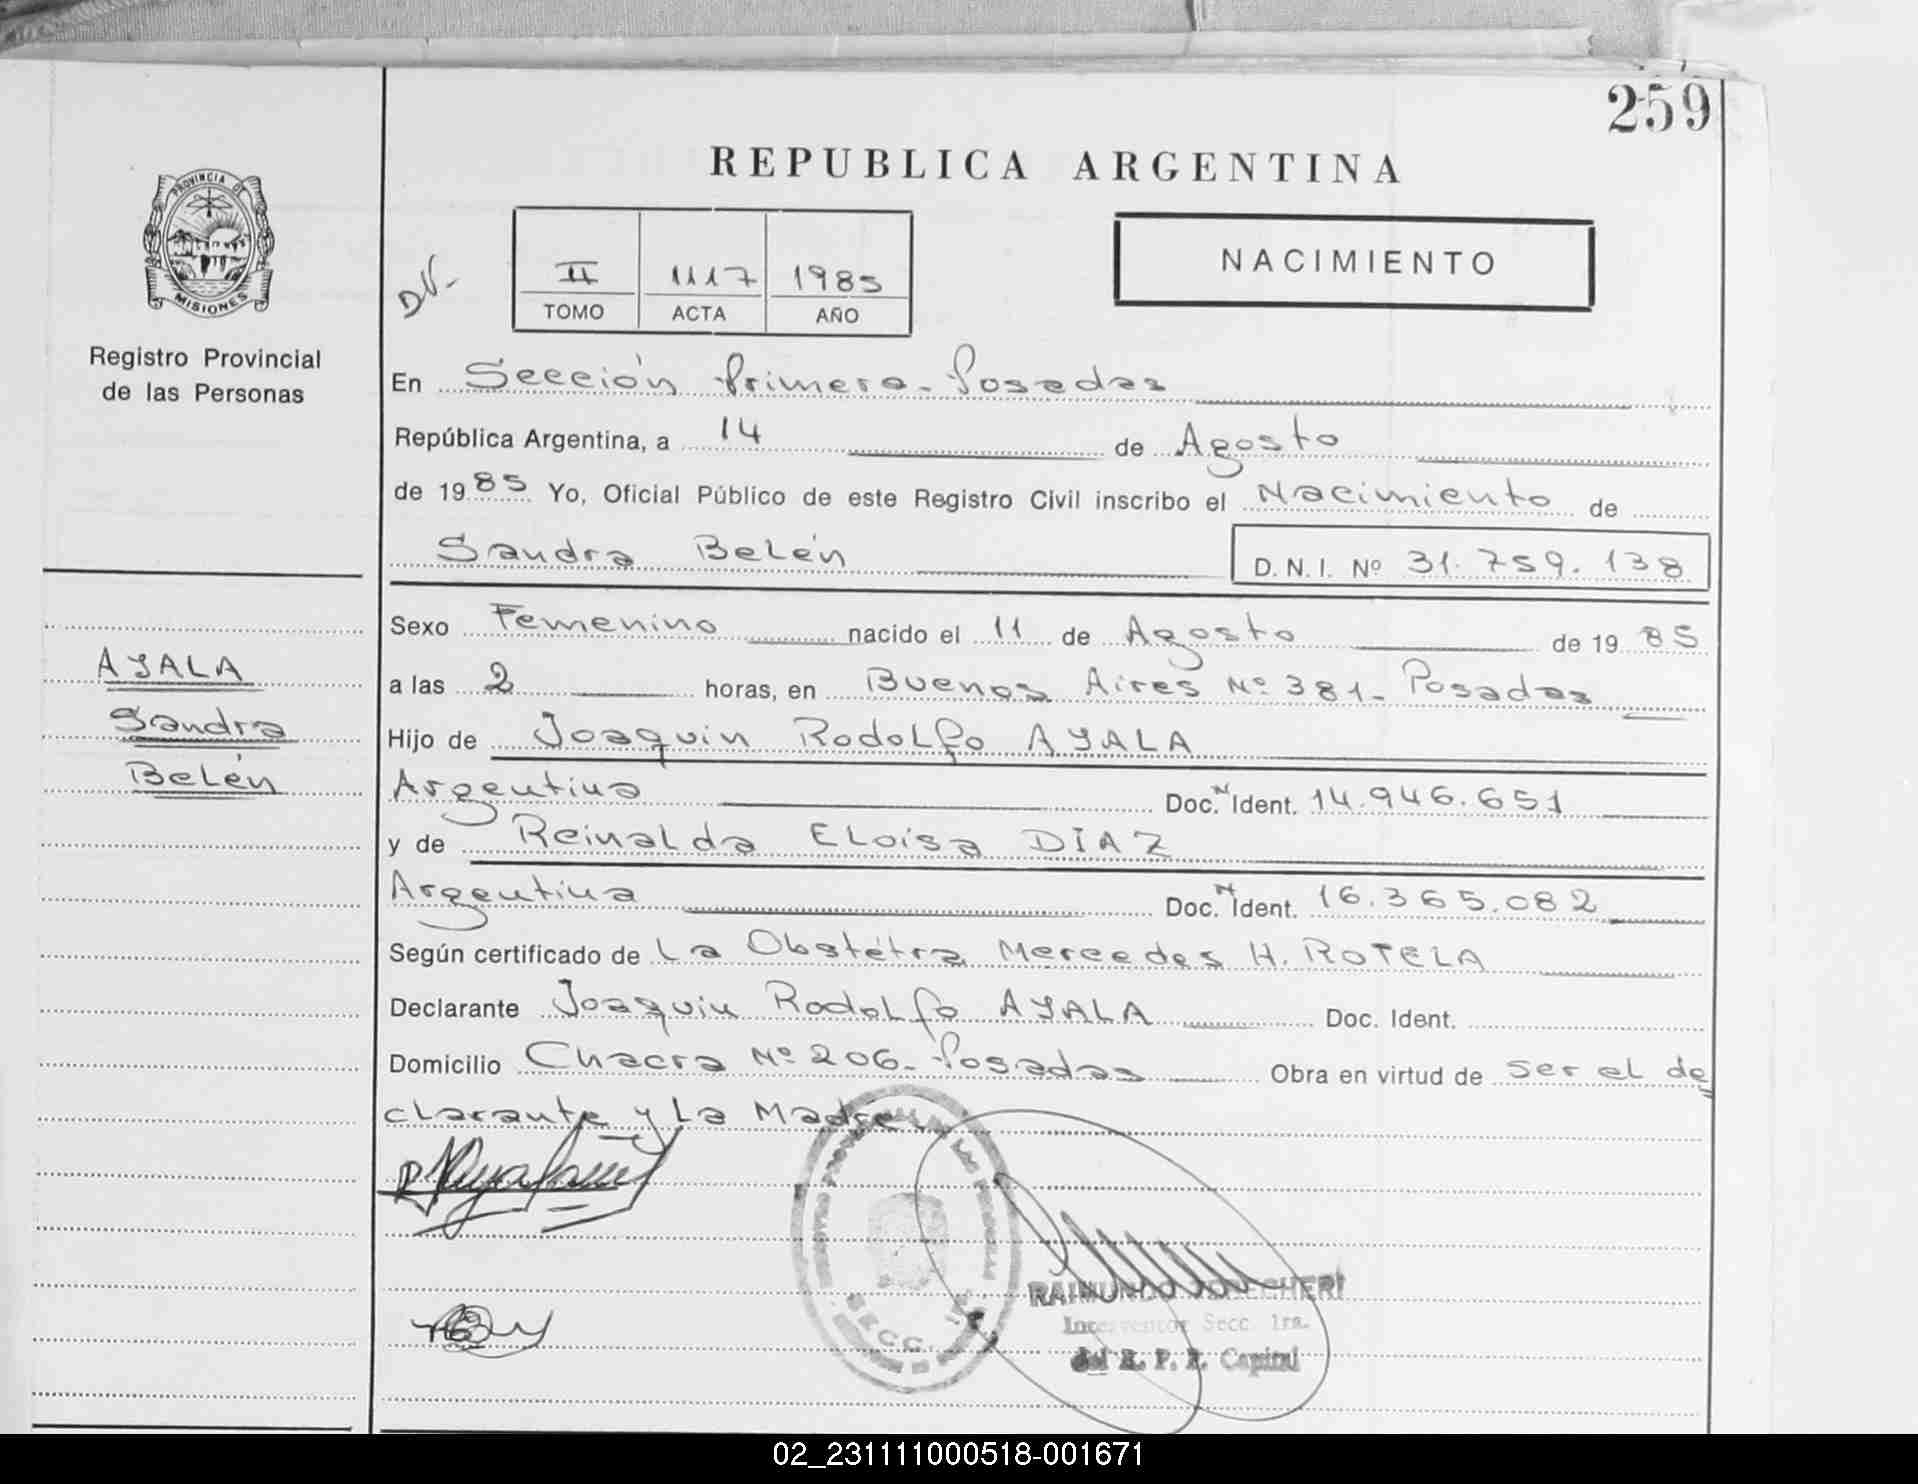 259
REPUBLICA ARGENTINA
PROVINCIA DE
MISIONES
Registro Provincial
de las Personas
DV-
II 1117 1985
TOMO ACTA AÑO
NACIMIENTO
En Sección Primera - Posadas
República Argentina, a 14 de Agosto
de 1985 Yo, Oficial Público de este Registro Civil inscribo el Nacimiento de
Sandra Belén D. N. I. Nº 31.759.138
Sexo Femenino nacido el 11 de Agosto de 1985
AYALA
a las 2 horas, en Buenos Aires Nº 381 - Posadas
Sandra
Hijo de Joaquin Rodolfo AYALA
Belén
Argentina Doc. N Ident. 14.946.651
y de Reinalda Eloisa DIAZ
Argentina Doc. N Ident. 16.365.082
Según certificado de La Obstétra Mercedes H. ROTELA
Declarante Joaquin Rodolfo AYALA Doc. Ident.
Domicilio Chacra Nº 206 - Posadas Obra en virtud de ser el de
clarante y La Madre
SECC. 1a.
RAIMUNDO
Interventor Secc. 1ra.
del R. P. P. Capital
02_231111000518-001671